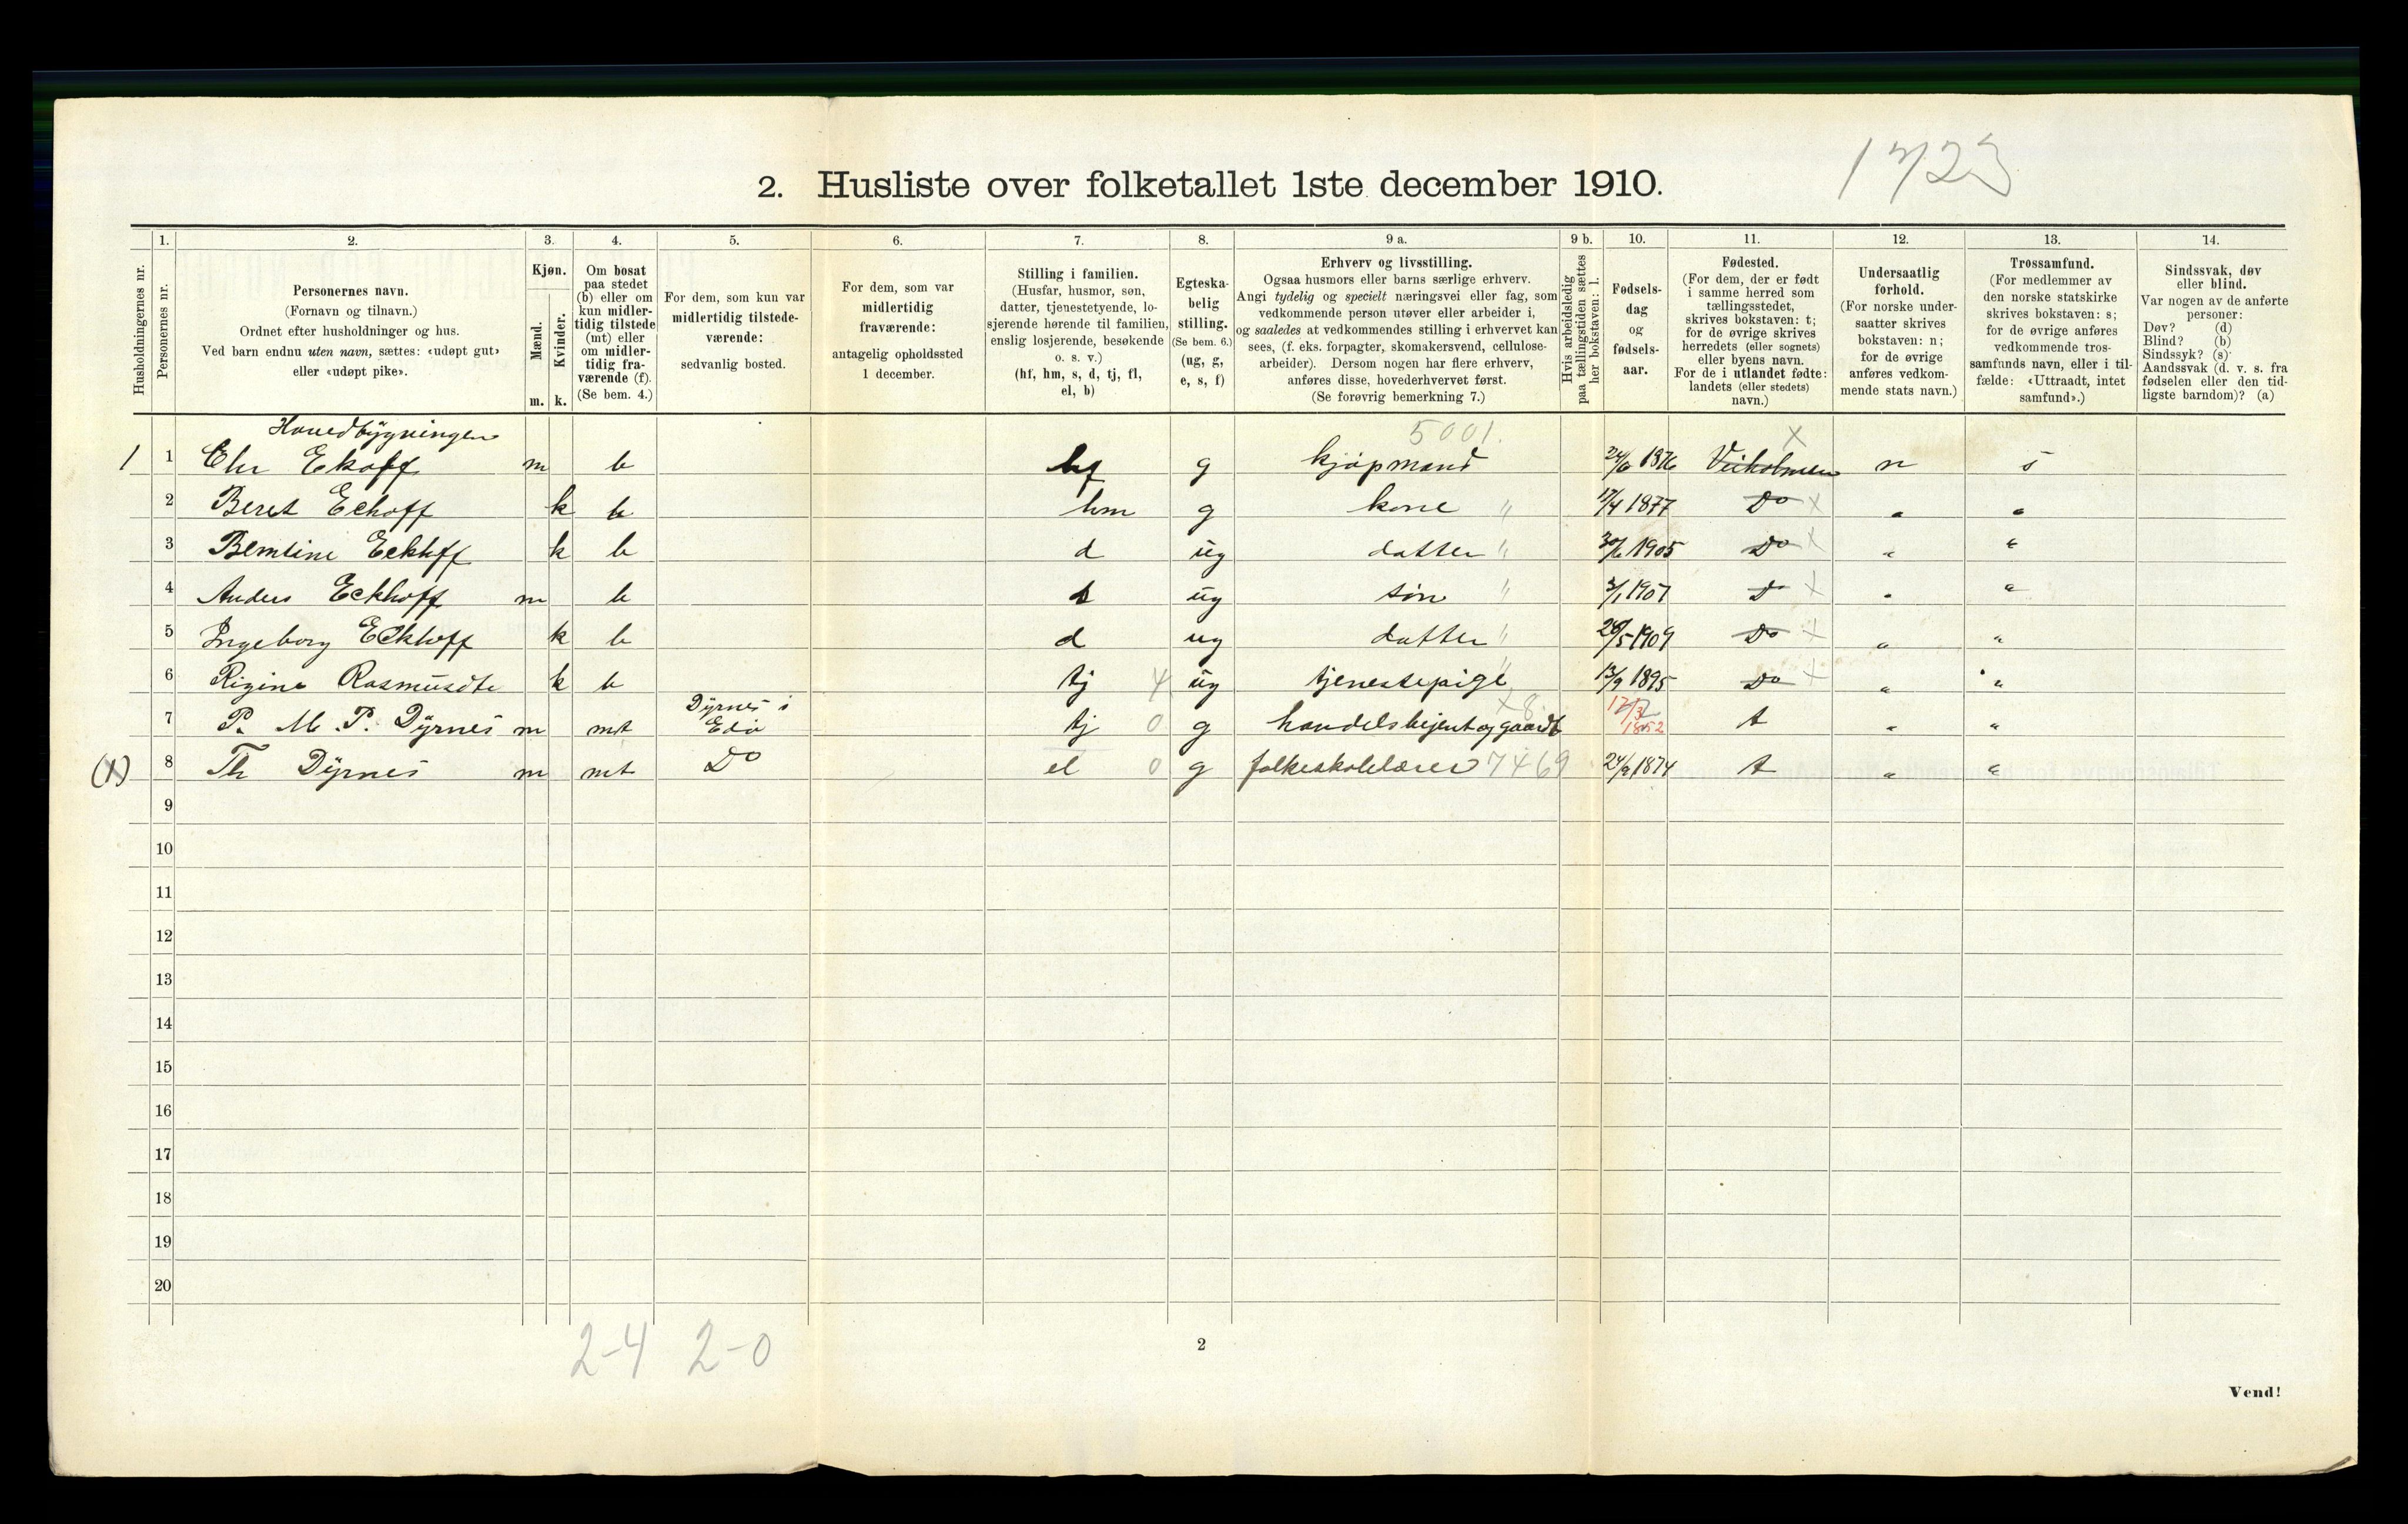 1723
2. Husliste over folketallet 1ste december 1910.
1. 2. 3. 4. 5. 6. 7. 8. 9 a. 9 b. 10. 11. 12. 13. 14.
Husholdningernes nr.
Personernes nr.
Personernes navn.
(Fornavn og tilnavn.)
Ordnet efter husholdninger og hus.
Ved barn endnu uten navn, sættes: «udøpt gut»
eller «udøpt pike».
Kjøn.
Mænd.
Kvinder.
m. k.
Om bosat
paa stedet
(b) eller om
kun midler-
tidig tilstede
(mt) eller
om midler-
tidig fra-
værende (f).
(Se bem. 4.)
For dem, som kun var
midlertidig tilstede-
værende:
sedvanlig bosted.
For dem, som var
midlertidig
fraværende:
antagelig opholdssted
1 december.
Stilling i familien.
(Husfar, husmor, søn,
datter, tjenestetyende, lo-
sjerende hørende til familien,
enslig losjerende, besøkende
o. s. v.)
(hf, hm, s, d, tj, fl,
el, b)
Egteska-
belig
stilling.
(Se bem. 6.)
(ug, g,
e, s, f)
Erhverv og livsstilling.
Ogsaa husmors eller barns særlige erhverv.
Angi tydelig og specielt næringsvei eller fag, som
vedkommende person utøver eller arbeider i,
og saaledes at vedkommendes stilling i erhvervet kan
sees, (f. eks. forpagter, skomakersvend, cellulose-
arbeider). Dersom nogen har flere erhverv,
anføres disse, hovederhvervet først.
(Se forøvrig bemerkning 7.)
Hvis arbeidsledig
paa tællingstiden sættes
her bokstaven: l.
Fødsels-
dag
og
fødsels-
aar.
Fødested.
(For dem, der er født
i samme herred som
tællingsstedet,
skrives bokstaven: t;
for de øvrige skrives
herredets (eller sognets)
eller byens navn.
For de i utlandet fødte:
landets (eller stedets)
navn.)
Undersaatlig
forhold.
(For norske under-
saatter skrives
bokstaven: n;
for de øvrige
anføres vedkom-
mende stats navn.)
Trossamfund.
(For medlemmer av
den norske statskirke
skrives bokstaven: s;
for de øvrige anføres
vedkommende tros-
samfunds navn, eller i til-
fælde: «Uttraadt, intet
samfund».)
Sindssvak, døv
eller blind.
Var nogen av de anførte
personer:
Døv? (d)
Blind? (b)
Sindssyk? (s)
Aandssvak (d. v. s. fra
fødselen eller den tid-
ligste barndom)? (a)
Hovedbygningen 5001. X
1 1 Chr Ekoff m b hf g kjøpmand 24/6 1876 Veiholmen n s
2 Beret Echoff k b hm g kone " 17/4 1877 Do X " "
3 Berntine Eckhff k b d ug datter " 30/6 1905 Do X " "
4 Anders Eckhoff m b s ug søn " 3/1 1907 D X " "
5 Ingeborg Eckhoff k b d ug datter " 1909 Do X " "
6 Rigine Rasmusdt k b tj 4 ug tjenestepige " 13/9 1895 Do X " "
7 P. M. P. Dyrnes m mt Dyrnes i Edø tj 0 g handelsbejent og gaardb X 8. 1852 t " "
(1) 8 Th Dyrnes m mt Do el 0 g folkeskolelærer 7469 24/9 1874 t " "
9
10
11
12
13
14
15
16
17
18
19
20
2-4 2-0
2
Vend!